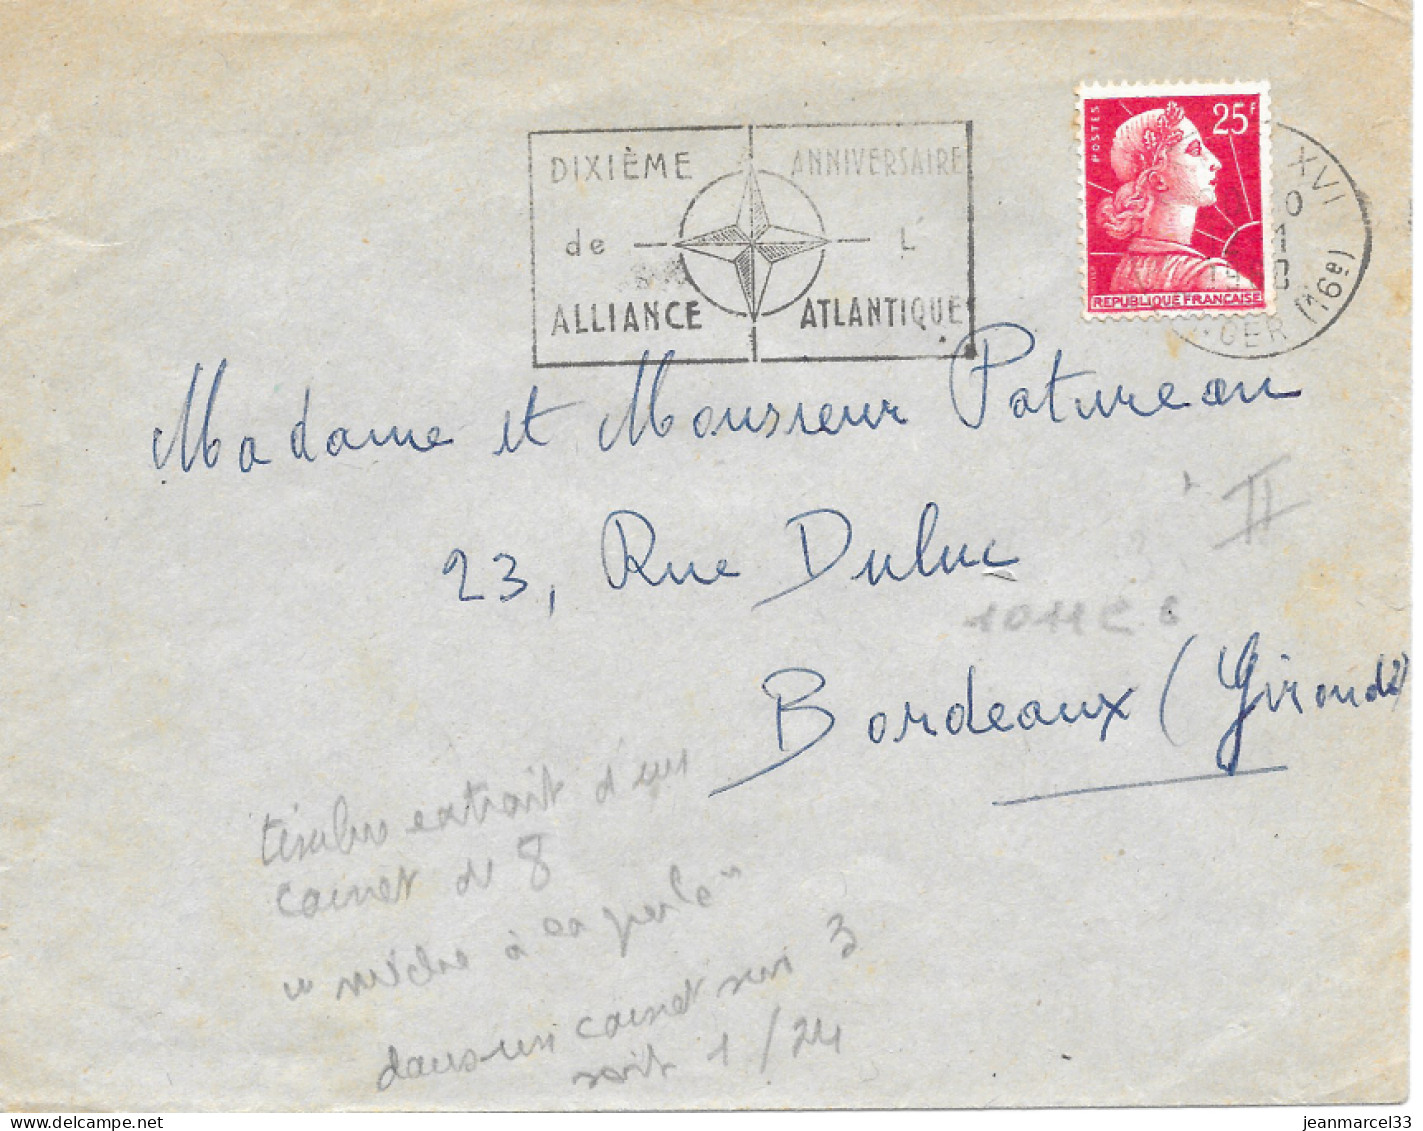 DIXIÈME ANNIVERSAIRE
de L
ALLIANCE ATLANTIQUE
POSTES
25F
REPUBLIQUE FRANÇAISE
XVI
GER (16e)
Madame et Monsieur Patureau
II
23, Rue Duluc
1011C
Bordeaux (Gironde)
timbre extrait d'un
carnet de 8
"mèche à la perle"
dans un carnet sur 3
soit 1/24
jeanmarcel33